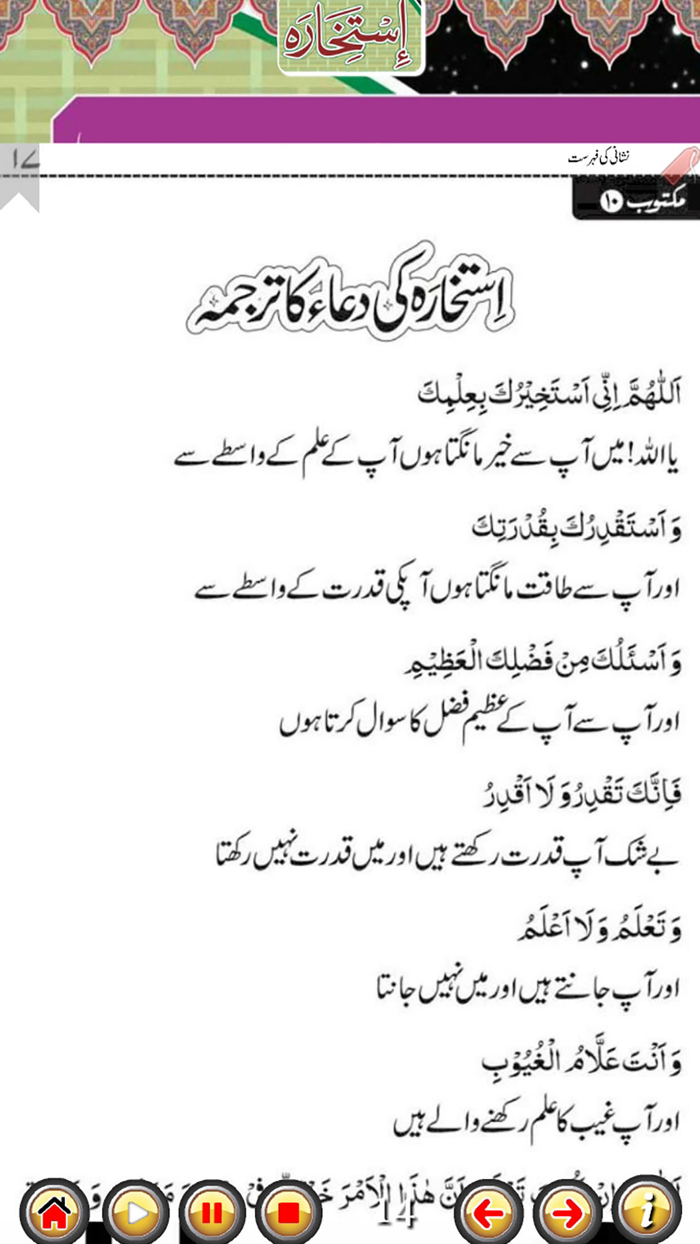 اِسْتِخَارَہ
۱۷
نشانی کی فہرست
مکتوب ۱۰
اِستخارہ کی دعاء کا ترجمہ
اَللّٰهُمَّ اِنِّیْ اَسْتَخِيْرُكَ بِعِلْمِكَ
یا اللہ! میں آپ سے خیر مانگتا ہوں آپ کے علم کے واسطے سے
وَ اَسْتَقْدِرُكَ بِقُدْرَتِكَ
اور آپ سے طاقت مانگتا ہوں آپکی قدرت کے واسطے سے
وَ اَسْئَلُكَ مِنْ فَضْلِكَ الْعَظِيْمِ
اور آپ سے آپ کے عظیم فضل کا سوال کرتا ہوں
فَاِنَّكَ تَقْدِرُ وَ لَا اَقْدِرُ
بے شک آپ قدرت رکھتے ہیں اور میں قدرت نہیں رکھتا
وَ تَعْلَمُ وَ لَا اَعْلَمُ
اور آپ جانتے ہیں اور میں نہیں جانتا
وَ اَنْتَ عَلَّامُ الْغُيُوْبِ
اور آپ غیب کا علم رکھنے والے ہیں
اَنَّ هٰذَا الْاَمْرَ
14